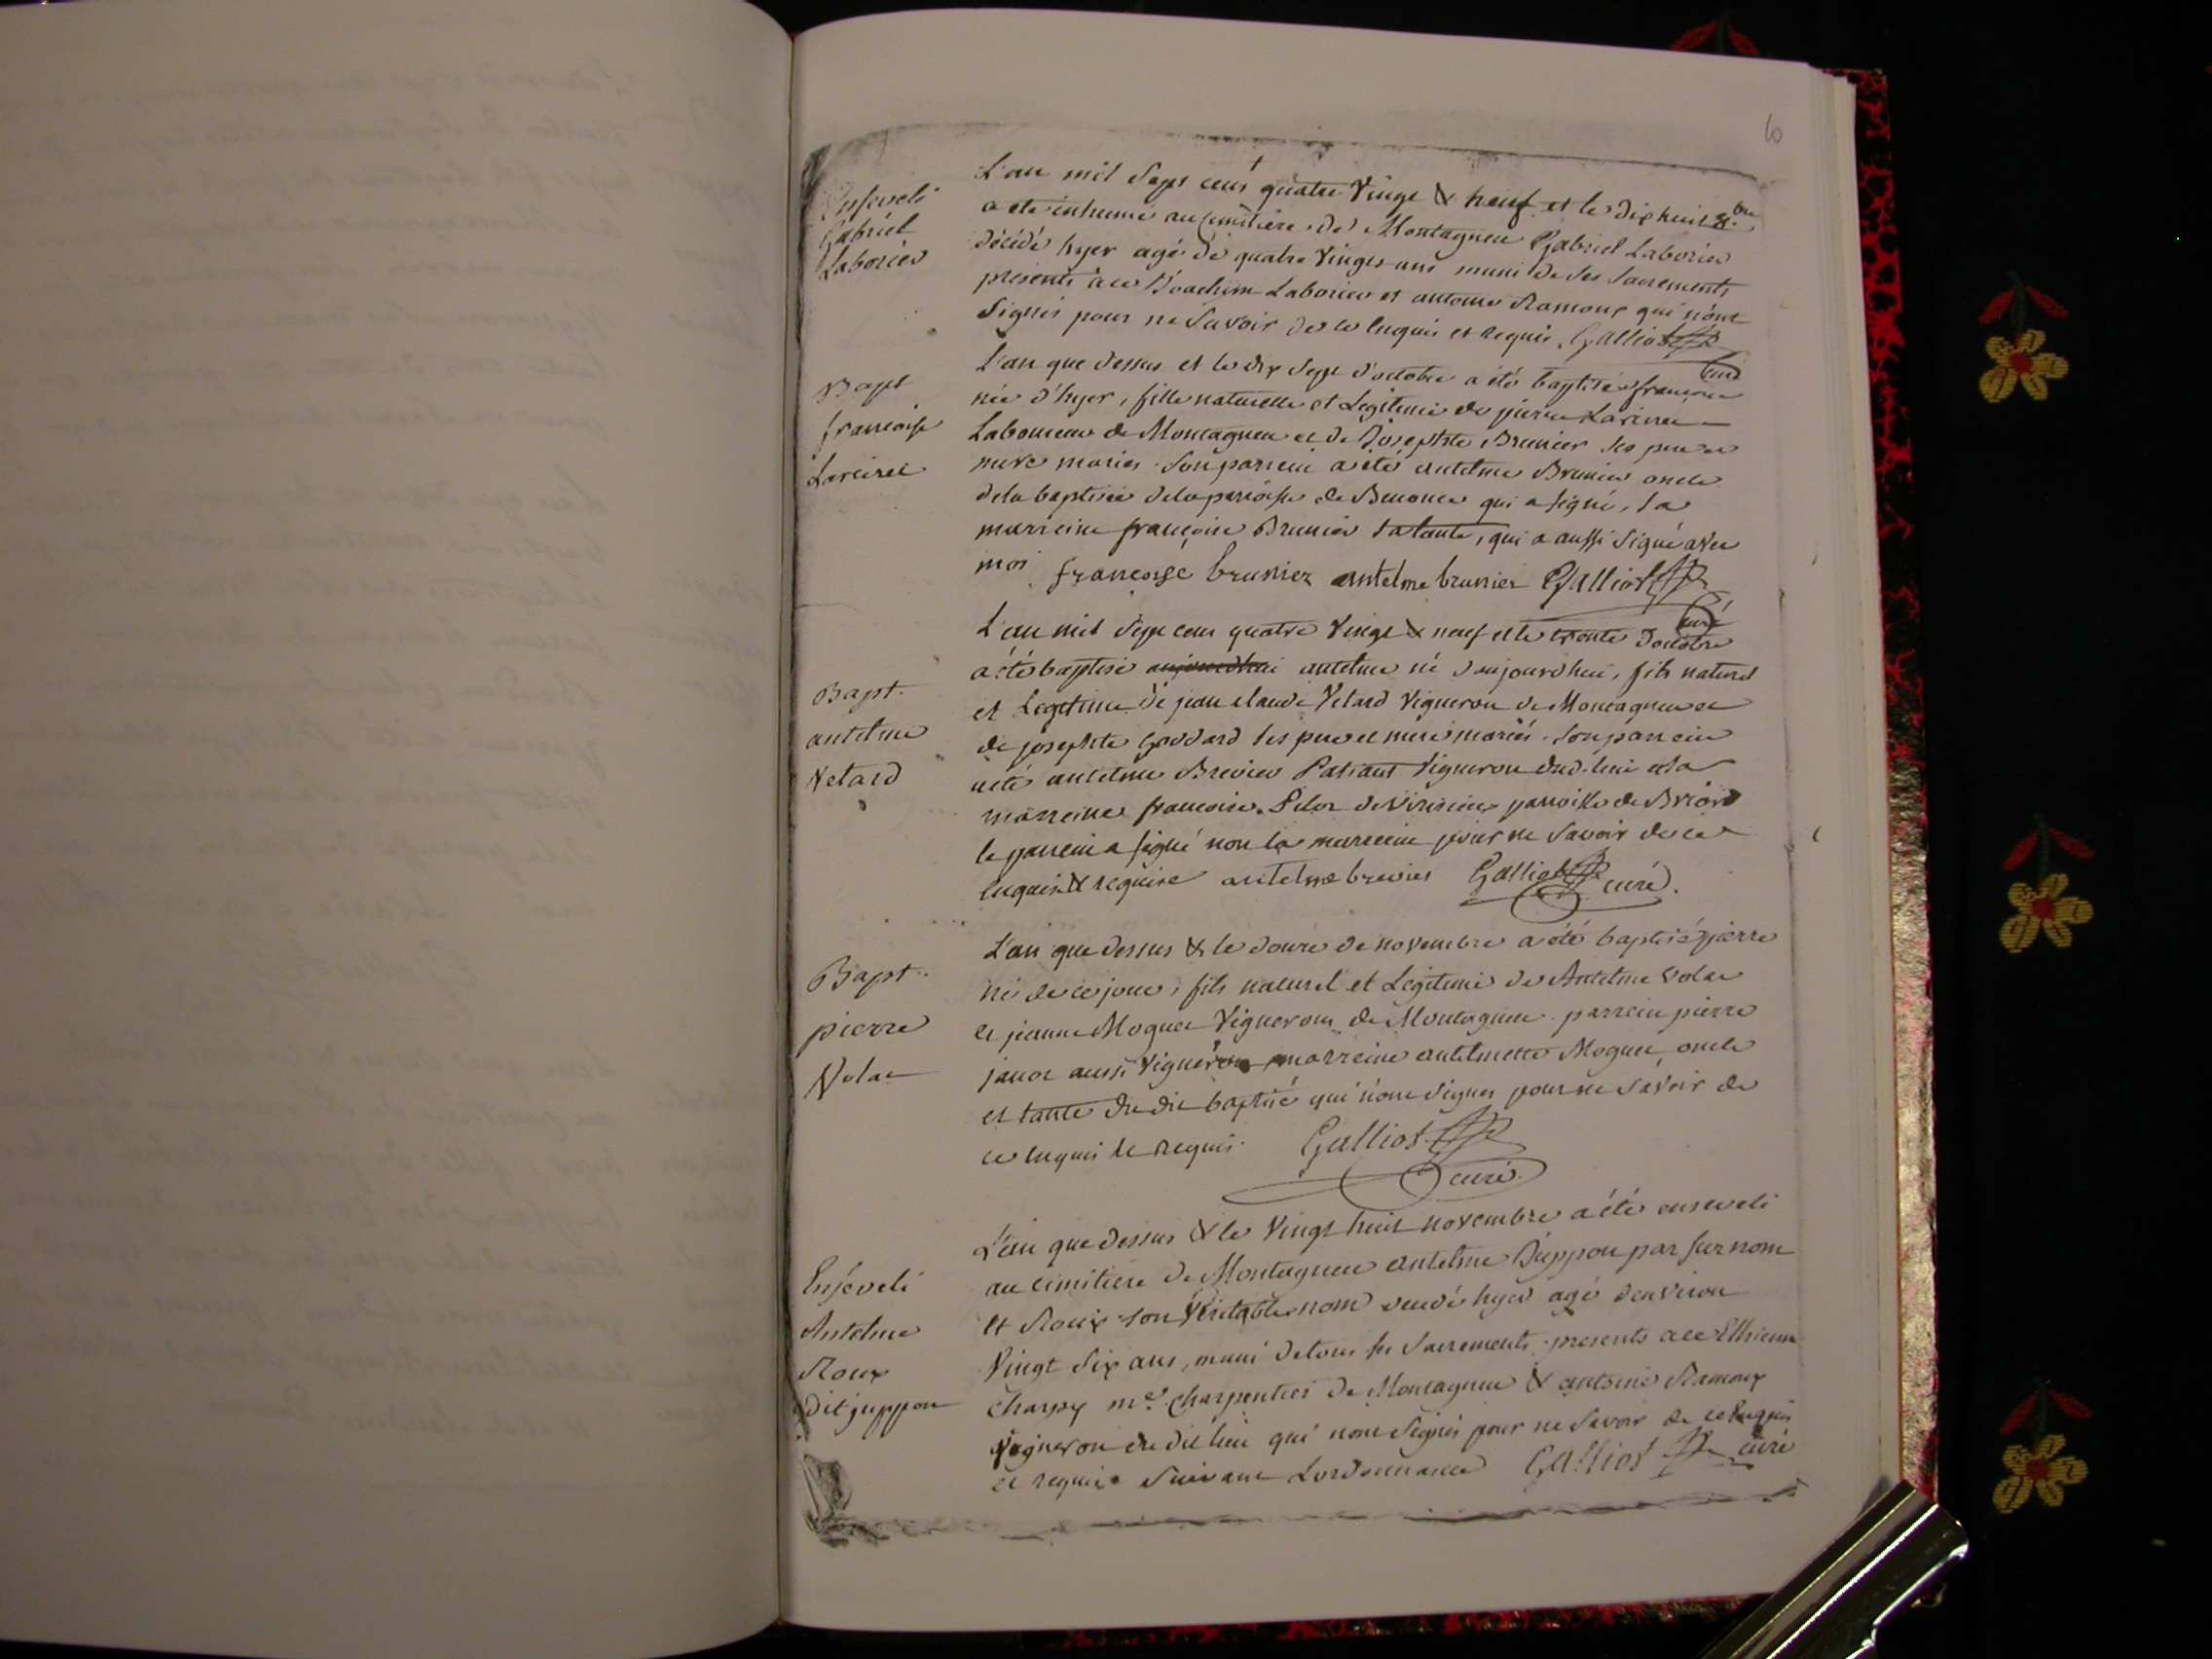 10
Enseveli
Gabriel
Laborier
L'an mil sept cens quatre vingt & neuf et le dix huit 8.bre
a ete inhumé au cimitière de Montagneu Gabriel Laborier
décédé hyer agé de quatre vingts ans muni de ses sacrements
présents à ce Joachim Laborier et antoine Ramoux qui n'ont
signés pour ne savoir de ce enquis et requis. Galliot
curé
Bapt
françoise
L'an que dessus et le dix sept d'octobre a été baptisée françoise
née d'hyer, fille naturelle et Legitime de pierre
Laboureur de Montagneu et de Josephte Brunier ses pere et
mere mariés. son parrein a été antelme Brunier oncle
de la baptisée de la parroisse de Benonce qui a signé, la
marreine françoise Brunier sa tante, qui a aussi signé avec
moi françoise brunier antelme brunier Galliot
curé
Bapt.
antelme
Velard
L'an mil sept cens quatre vingt & neuf et le trente d'octobre
a été baptisé aujourdhui antelme né d'aujourdhui, fils naturel
et Legitime de jean claude Velard vigneron de Montagneu et
de josephte Goddard ses pere et mere mariés. son parrein
a été antelme Brevier vigneron dud. lieu et la
marreine françoise parroisse de Briord
le parrein a signé non la marreine pour ne savoir de ce
enquise & requise antelme brevier Galliot curé.
Bapt.
pierre
Volat
L'an que dessus & le douze de novembre a été baptisé pierre
né de ce jour, fils naturel et Légitime de Antelme Volat
et jeanne Moguet vignerons de Montagneu. parrein pierre
aussi vigneron marreine antelmette Moguet, oncle
et tante du dit baptisé qui n'ont signés pour ne savoir de
ce enquis & requis. Galliot
curé.
Enséveli
Antelme
Roux
dit juppon
L'an que dessus & le vingt huit novembre a été enseveli
au cimitiere de Montagneu antelme Juppon par surnom
et Roux son véritable nom décédé hyer agé d'environ
vingt six ans, muni de tous les sacrements. présents à ce Ethienne
Charpy me. charpentier de Montagneu & antoine Ramoux
vigneron du dit lieu qui n'ont signés pour ne savoir de ce enquis
et requis suivant L'ordonnance Galliot curé